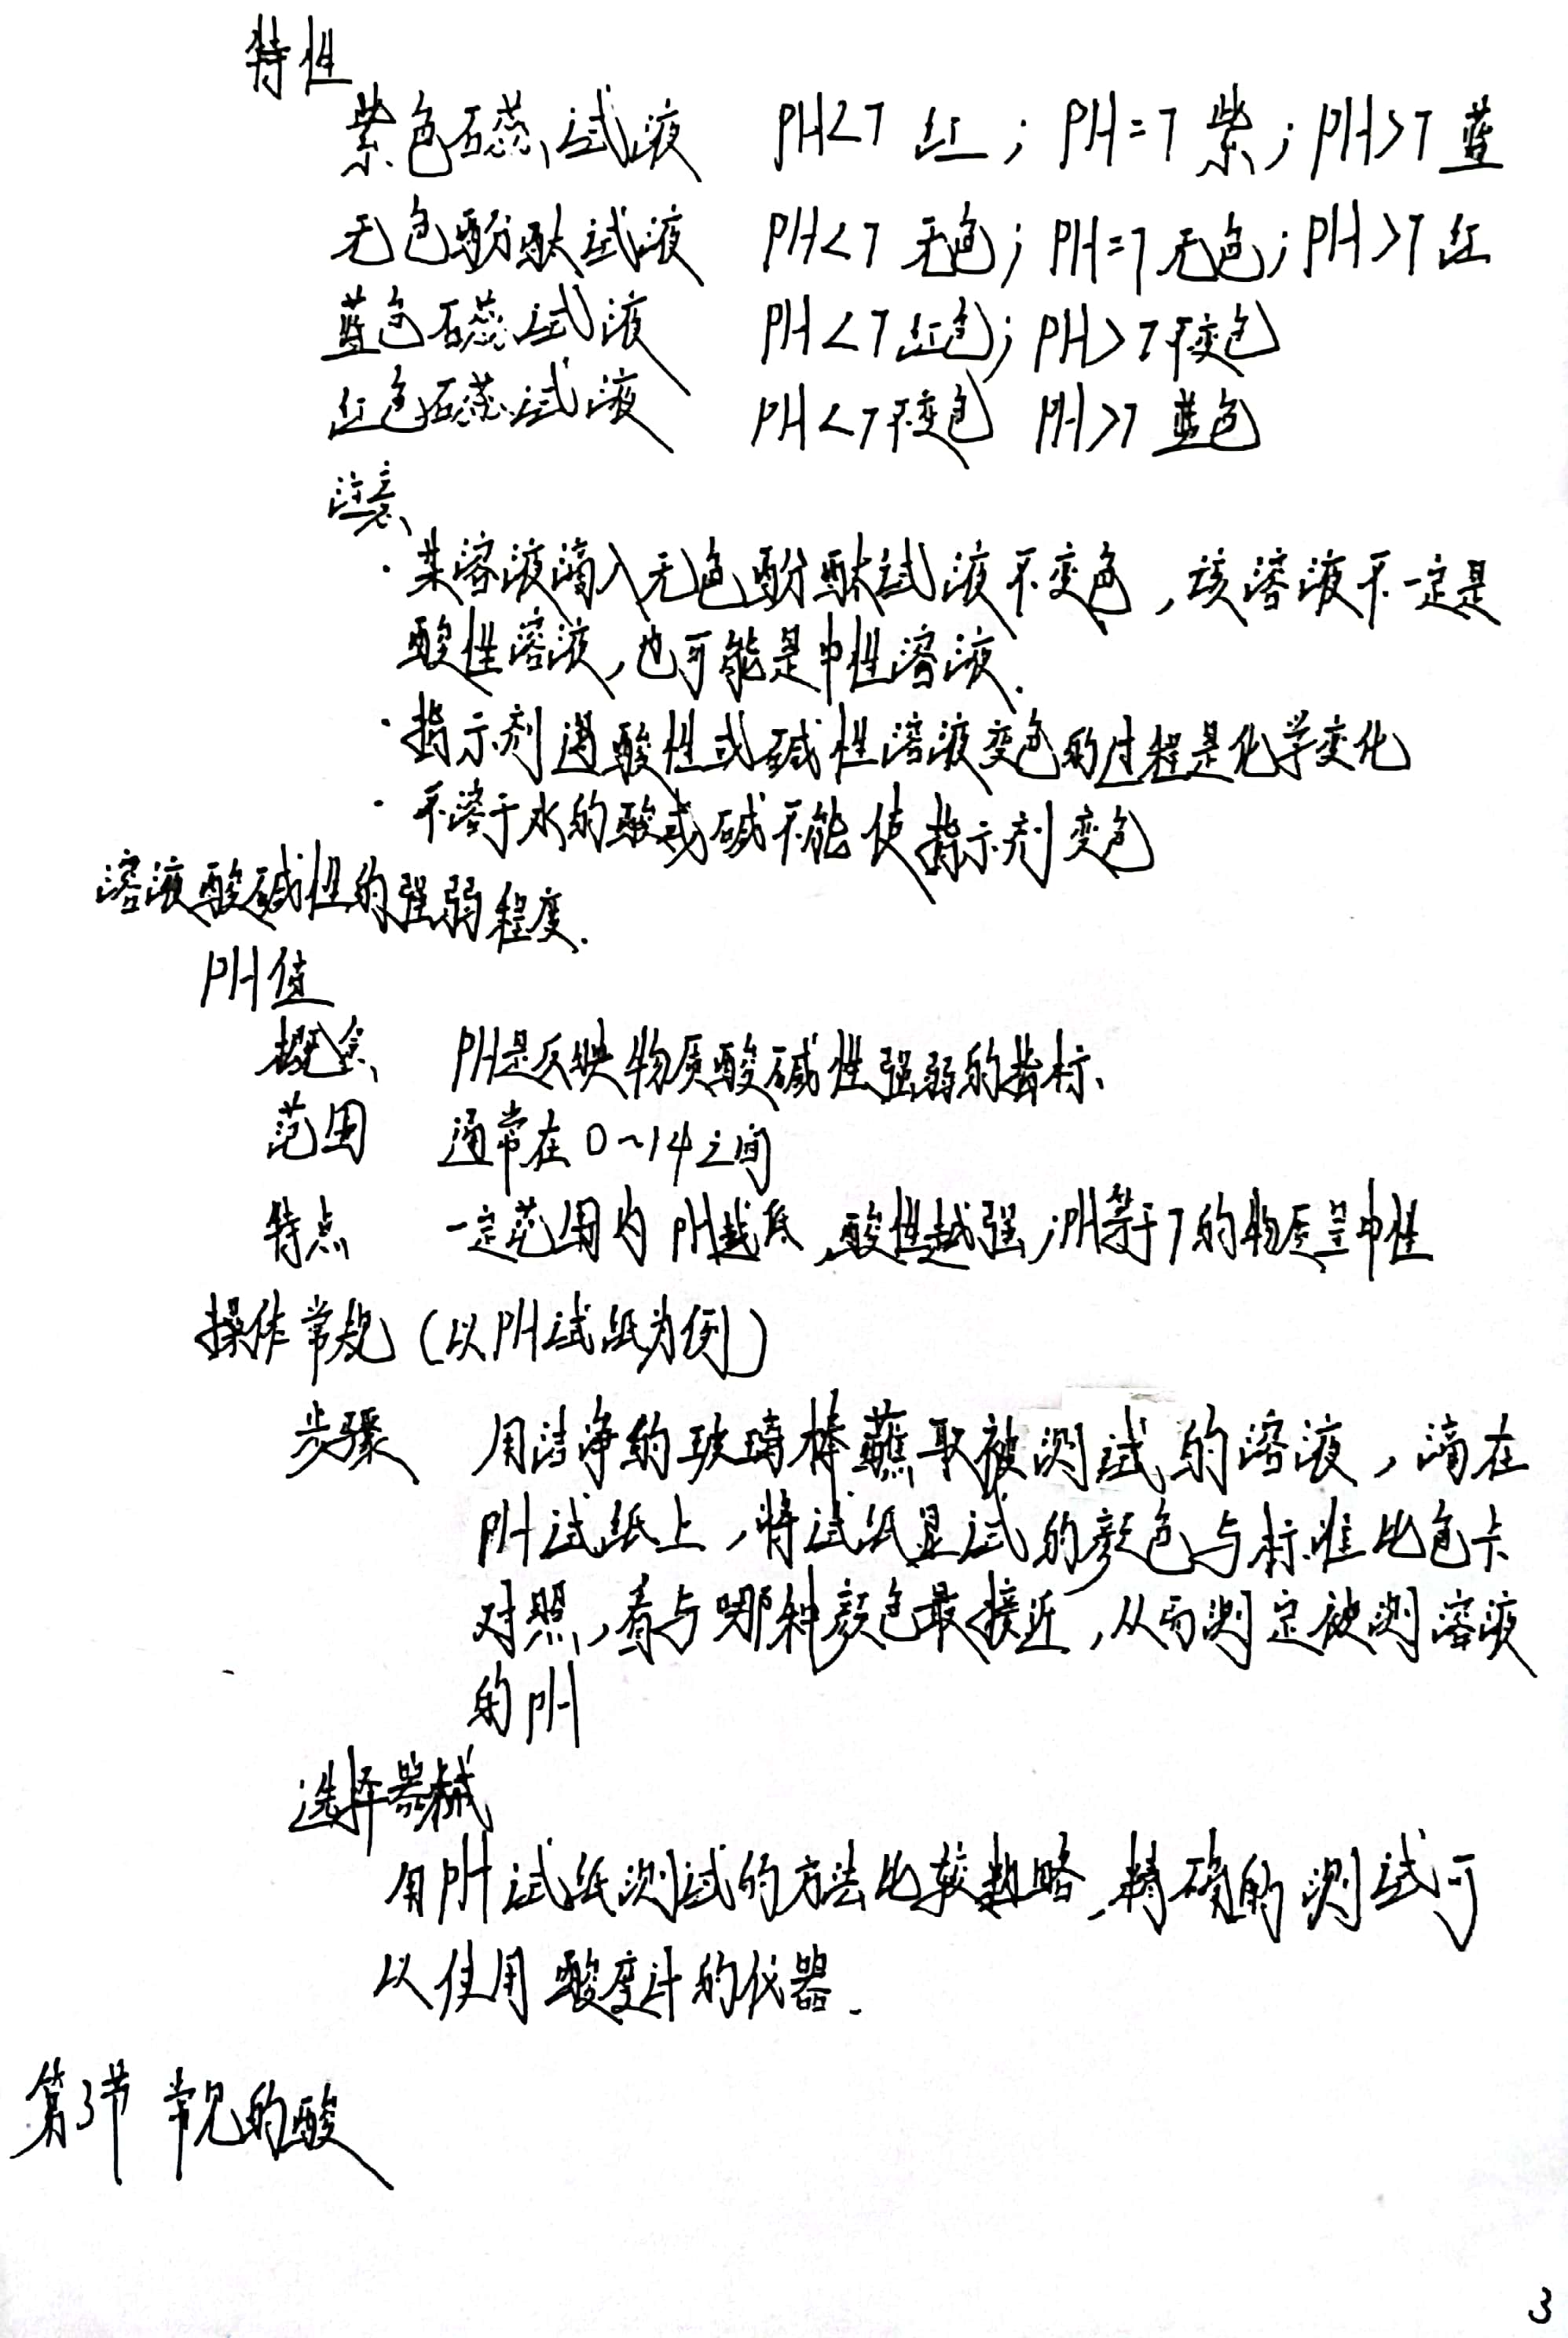 特性
紫色石蕊试液 PH<7 红；PH=7 紫；PH>7 蓝
无色酚酞试液 PH<7 无色；PH=7 无色；PH>7 红
蓝色石蕊试液 PH<7 红色；PH>7 不变色
红色石蕊试液 PH<7 不变色 PH>7 蓝色
注意
·某溶液滴入无色酚酞试液不变色，该溶液不一定是
酸性溶液，也可能是中性溶液.
·指示剂遇酸性或碱性溶液变色的过程是化学变化
·不溶于水的酸或碱不能使指示剂变色
溶液酸碱性的强弱程度.
PH值
概念 PH是反映物质酸碱性强弱的指标、
范围 通常在0~14之间
特点 一定范围内PH越低，酸性越强；PH等于7的物质呈中性
操作常规（以PH试纸为例）
步骤 用洁净的玻璃棒蘸取被测试的溶液，滴在
PH试纸上，将试纸显试的颜色与标准比色卡
对照，看与哪种颜色最接近，从而测定被测溶液
的PH
选择器械
用PH试纸测试的方法比较粗略，精确的测试可
以使用酸度计的仪器.
第3节 常见的酸
3